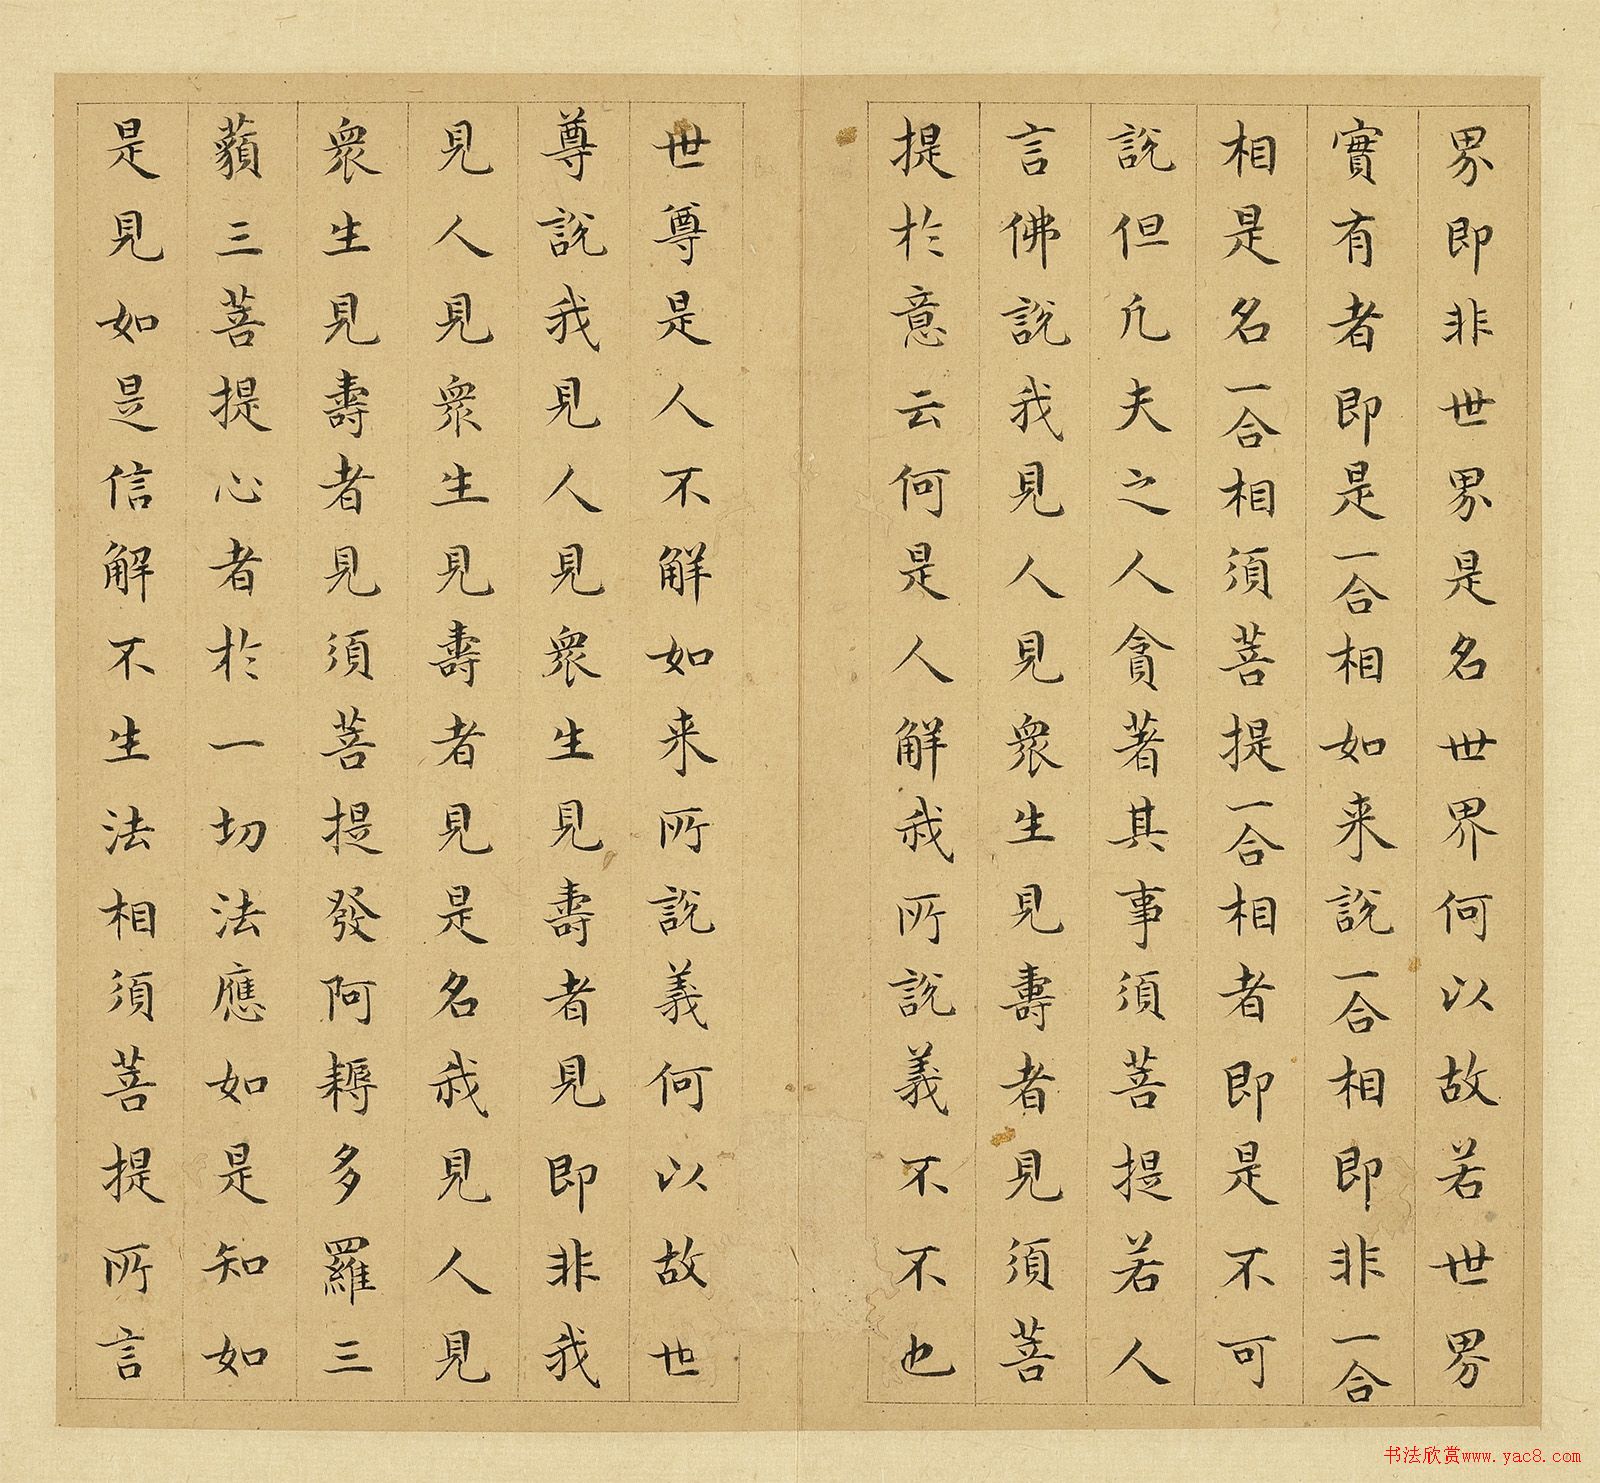 界即非世界是名世界何以故若世界
實有者即是一合相如来說一合相即非一合
相是名一合相須菩提一合相者即是不可
說但凡夫之人貪著其事須菩提若人
言佛說我見人見衆生見壽者見須菩
提於意云何是人解我所說義不不也
世尊是人不解如来所說義何以故世
尊說我見人見衆生見壽者見即非我
見人見衆生見壽者見是名我見人見
衆生見壽者見須菩提發阿耨多羅三
藐三菩提心者於一切法應如是知如
是見如是信解不生法相須菩提所言
书法欣赏www.yac8.com